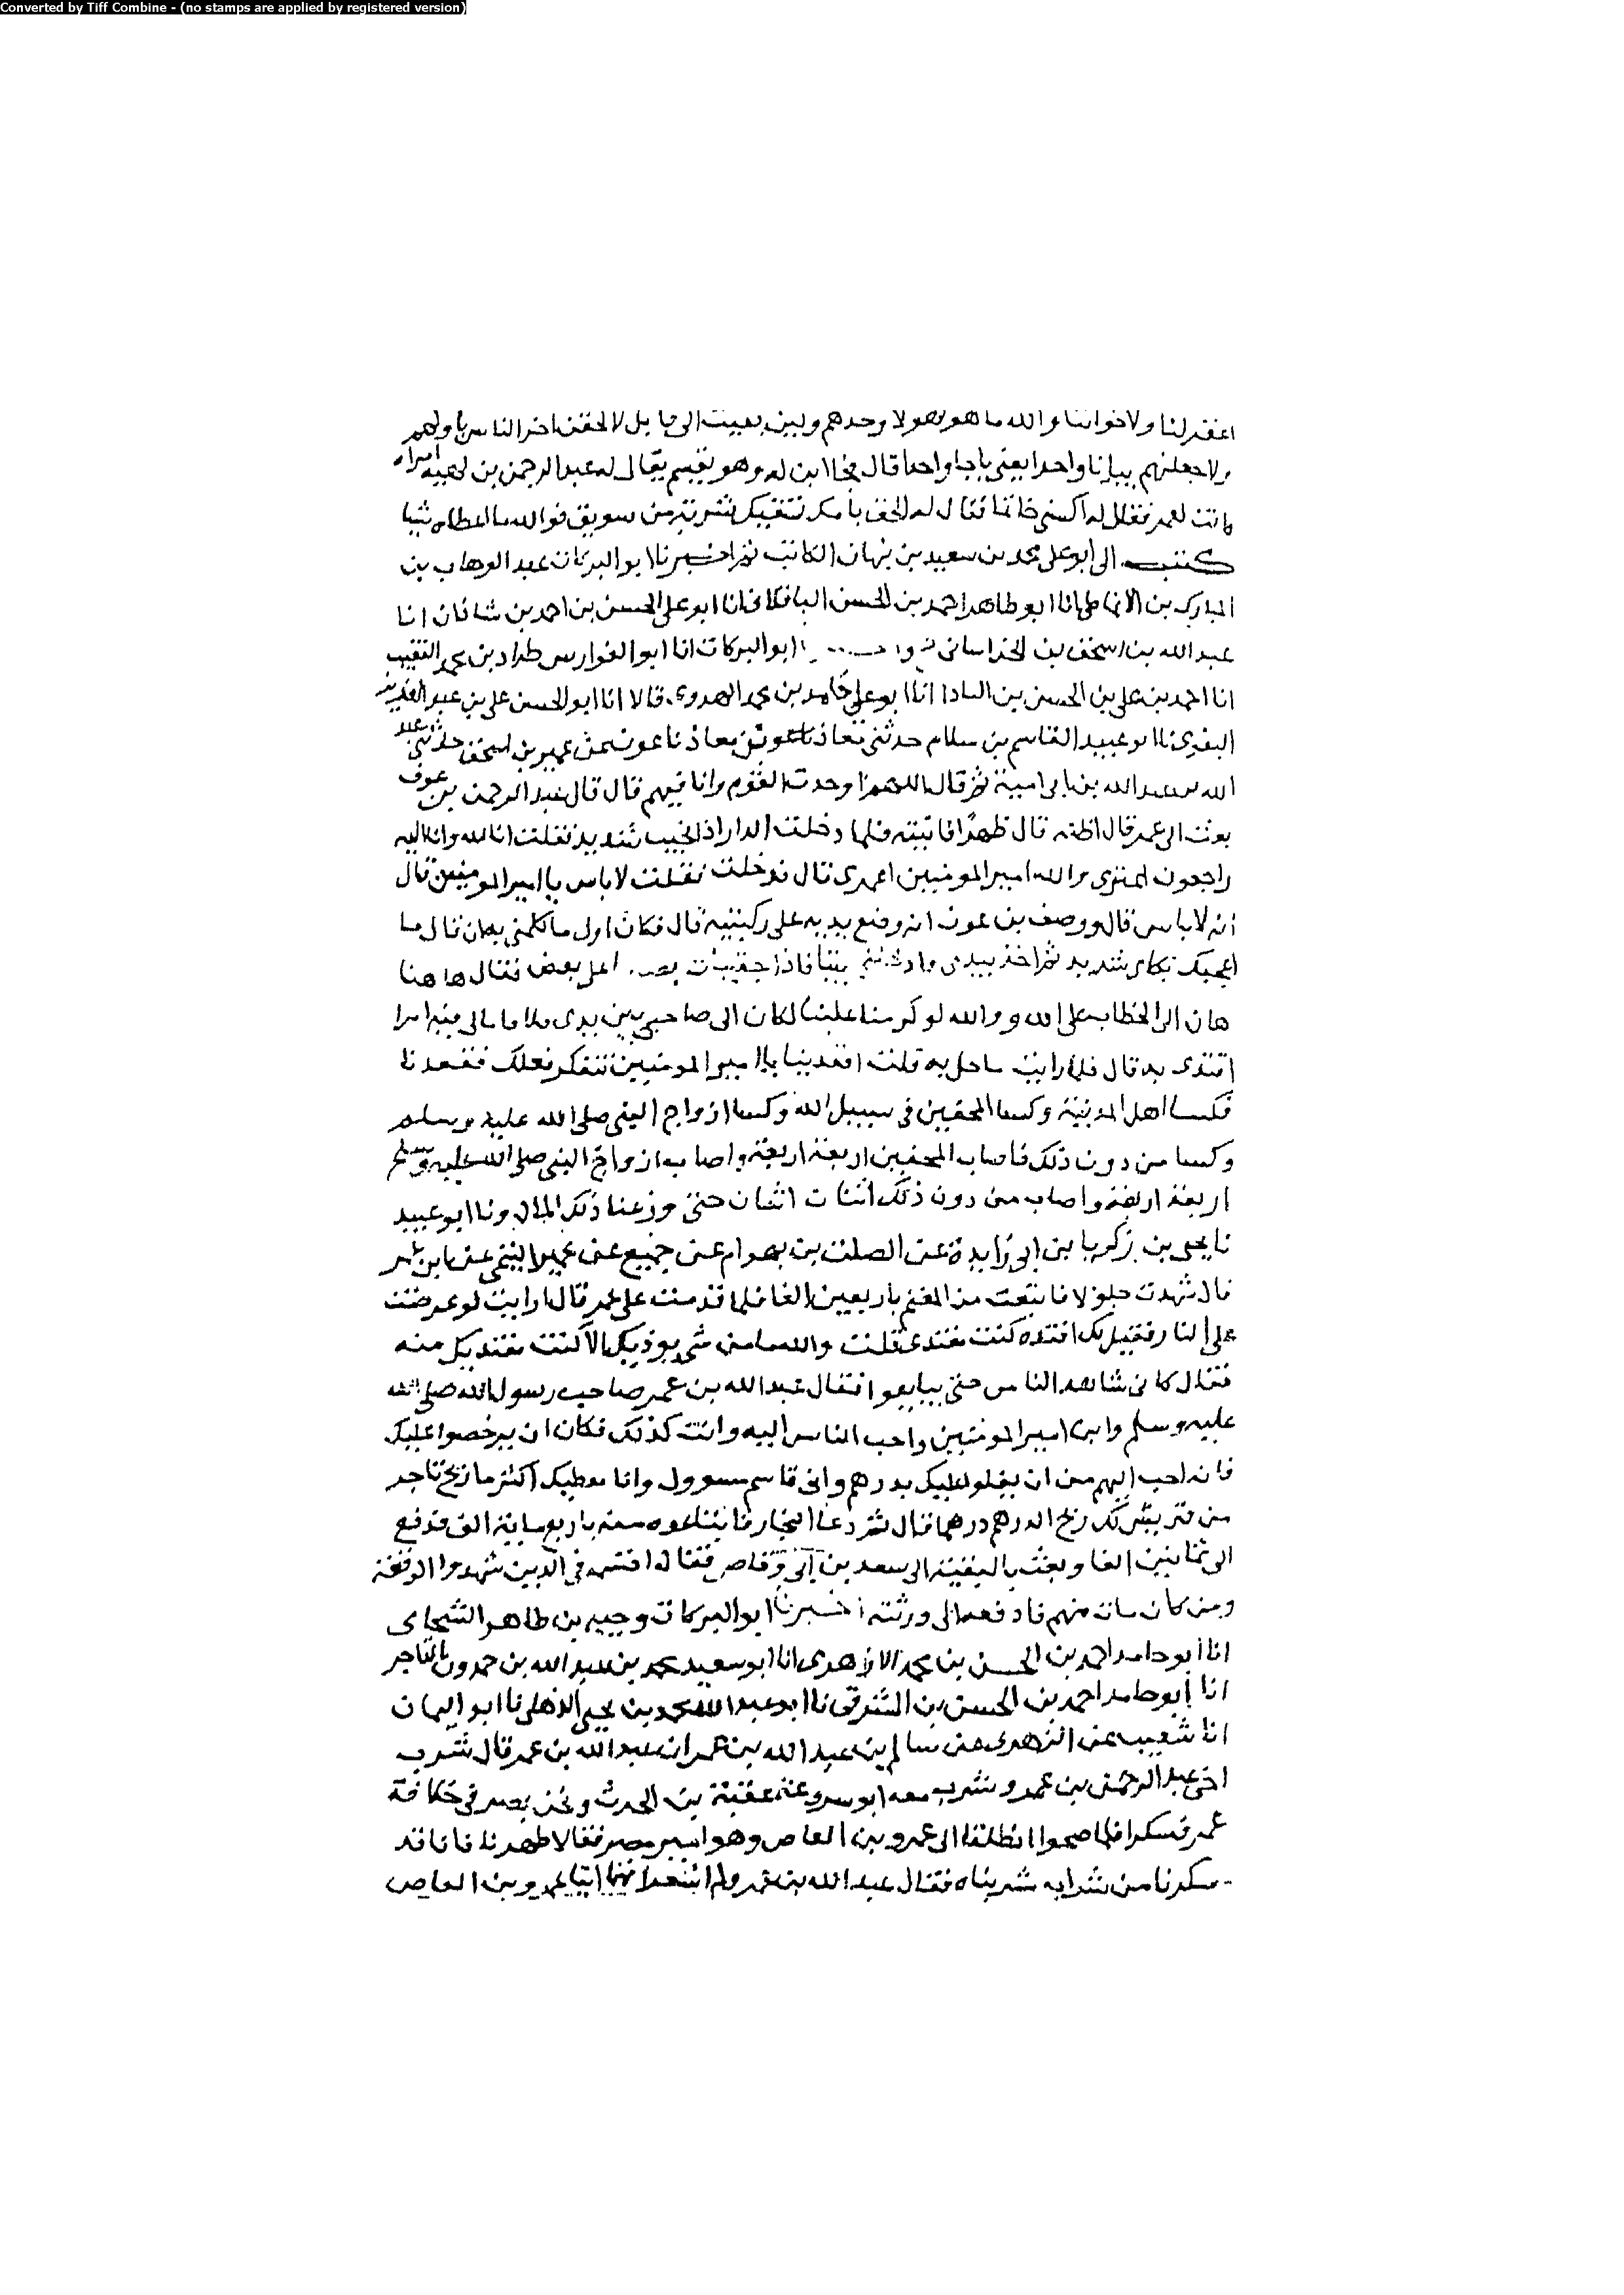 Converted by Tiff Combine - (no stamps are applied by registered version)
اغفر لنا ولاخواننا والله ما هو بهولا وحدهم ولين بقيت الى قابل لالحقن اخر الناس باولهم
ولاجعلنهم ببانا واحدا يعنى باجا واحدا قال فجا ابن له وهو يقسم يقال له عبد الرحمن بن لهيه امراه
كانت لعمر فقال له اكسنى خاتما فقال له الحق بامك تسقيك شربة من سويق فوالله ما اعطاه شيا
كتب الى ابو على محمد بن سعيد بن نبهان الكاتب ثم اخبرنا ابو البركات عبد الوهاب بن
المبارك بن الانماطى انا ابو طاهر احمد بن الحسن الباقلانى انا ابو على الحسن بن احمد بن شاذان انا
عبد الله بن اسحق بن الخراسانى ابو البركات انا ابو الفوارس طراد بن محمد النقيب
انا احمد بن على بن الحسن بن البادا انا ابو على حامد بن محمد الهروى قالا انا ابو الحسن على بن عبد العزيز
البغوى نا ابو عبيد القاسم بن سلام حدثنى معاذ بن معاذ نا عون عن عمير بن اسحق حدثنى عبد
الله عبد الله بن ابى امية ثم قال اللهم اوحدت القوم وانا فيهم قال قال عبد الرحمن بن عوف
بعث الى عمر قال اظنه قال ظهرا فاتيته فلما دخلت الدار اذا نحيب شديد فقلت انا لله وانا اليه
راجعون اعترى والله امير المومنين اعترى قال فدخلت فقلت لا باس يا امير المومنين قال
انه لا باس قال ووصف بن عون انه وضع يديه على ركبتيه قال فكان اول ما كلمنى به ان قال ما
اعجبك بكاى شديد ثم اخذ بيدى فادخلنى بيتا فاذا حقيبات بعضها على بعض فقال هاهنا
هان ال الخطاب على الله والله لو كرمنا عليه لكان الى صاحبى بين يدى فلاقاما لى فيه امرا
اقتدى به قال فلما رايت ما حل به قلت اقعد بنا يا امير المومنين نتفكر فعلك فقعدنا
فكسا اهل المدينة وكسا المحقين فى سبيل الله وكسا ازواج النبى صلى الله عليه وسلم
وكسا من دون ذلك فاصاب المحقين اربعة اربعة واصاب ازواج النبى صلى الله عليه وسلم
اربعة اربعة واصاب من دون ذلك اثنان اثنان حتى وزعنا ذلك المال ونا ابو عبيد
نا يحيى بن زكريا بن ابى زايدة عن الصلت بن بهرام عن جميع عن عمير التيمى عن ابن عمر
قال شهدت جلولا فابتعت من المغنم باربعين الفا فلما قدمت على عمر قال ارايت لو عرضت
على النار فقيل لك افتده كنت مفتدى قلت والله ما من شى يوذيك الا كنت مفتديك منه
فقال كانى شاهد الناس حتى يبايعوا فقال عبد الله بن عمر صاحب رسول الله صلى الله
عليه وسلم وابن امير المومنين واحب الناس اليه وانت كذلك فكان ان يرخصوا عليك
فانه احب اليهم من ان يغلو عليك بدرهم وانى قاسم مسوول وانا معطيك اكثر ما ربح تاجر
من قريش لك ربح الدرهم درهما قال ثم دعا التجار فابتاعوه منه باربع ماية الف فدفع
الى ثمانين الفا وبعث بالبقية الى سعد بن ابى وقاص فقال اقسمه فى الذين شهدوا الوقعة
ومن كان مات منهم فادفعه الى ورثته اخبرنا ابو البركات وجيه بن طاهر الشحامى
انا ابو حامد احمد بن الحسن بن محمد الازهرى انا ابو سعيد محمد بن عبد الله بن حمدون التاجر
انا ابو حامد احمد بن الحسن بن الشرقى نا ابو عبد الله محمد بن يحيى الذهلى نا ابو اليمان
انا شعيب عن الزهرى عن سالم بن عبد الله بن عمر ان عبد الله بن عمر قال شرب
اخى عبد الرحمن بن عمر وشرب معه ابو سروعة عقبة بن الحرث ونحن بمصر فى خلافة
عمر فسكرا فلما اصحوا انطلقا الى عمرو بن العاص وهو امير مصر فقالا طهرنا فانا قد
سكرنا من شراب شربناه فقال عبد الله بن عمر ولم اشعر انهما اتيا عمرو بن العاص